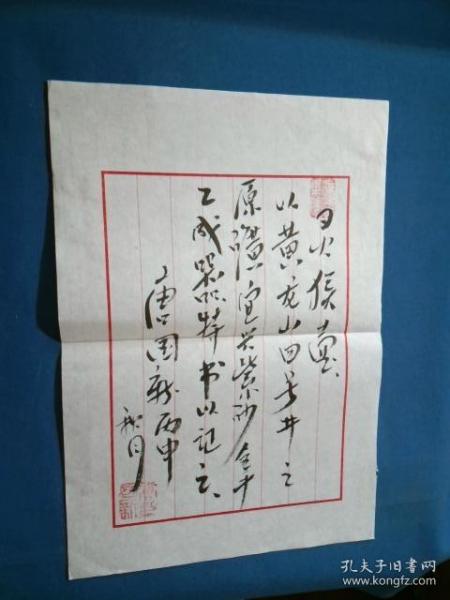 日火侯壶
以黄龙山四号井之
原矿宜兴紫砂全手
工成器品特书以记之
唐国
丙申
秋月
孔夫子旧书网
www.kongfz.com